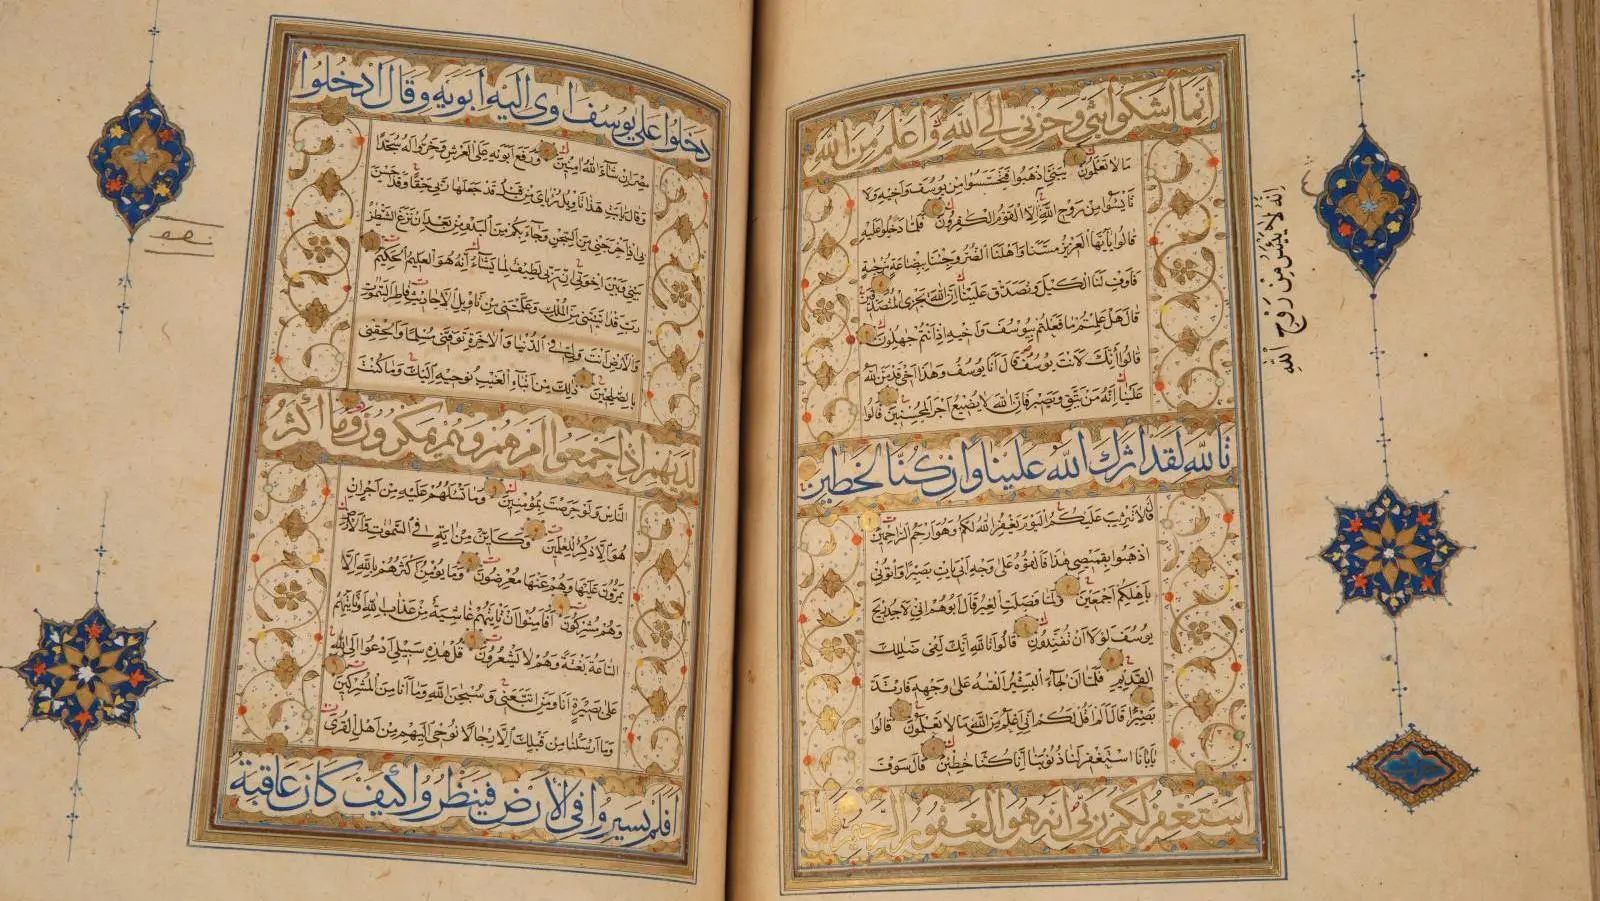 اِنَّمَا اَشْكُوا بَثِّي وَحُزْنِي اِلَى اللهِ وَاَعْلَمُ مِنَ اللهِ
مَا لَا تَعْلَمُونَ يٰبَنِيَّ اذْهَبُوا فَتَحَسَّسُوا مِنْ يُوسُفَ وَاَخِيهِ وَلَا
تَايْئَسُوا مِنْ رَوْحِ اللهِ اِلَّا الْقَوْمُ الْكٰفِرُونَ فَلَمَّا دَخَلُوا عَلَيْهِ
قَالُوا يٰاَيُّهَا الْعَزِيزُ مَسَّنَا وَاَهْلَنَا الضُّرُّ وَجِئْنَا بِبِضَاعَةٍ مُزْجٰيةٍ
فَاَوْفِ لَنَا الْكَيْلَ وَتَصَدَّقْ عَلَيْنَا اِنَّ اللهَ يَجْزِي الْمُتَصَدِّقِينَ
قَالَ هَلْ عَلِمْتُمْ مَا فَعَلْتُمْ بِيُوسُفَ وَاَخِيهِ اِذْ اَنْتُمْ جٰهِلُونَ
قَالُوا اَئِنَّكَ لَاَنْتَ يُوسُفُ قَالَ اَنَا يُوسُفُ وَهٰذَا اَخِي قَدْ مَنَّ اللهُ
عَلَيْنَا اِنَّهُ مَنْ يَتَّقِ وَيَصْبِرْ فَاِنَّ اللهَ لَا يُضِيعُ اَجْرَ الْمُحْسِنِينَ قَالُوا
تَاللهِ لَقَدْ اٰثَرَكَ اللهُ عَلَيْنَا وَاِنْ كُنَّا لَخٰطِئِينَ
قَالَ لَا تَثْرِيبَ عَلَيْكُمُ الْيَوْمَ يَغْفِرُ اللهُ لَكُمْ وَهُوَ اَرْحَمُ الرَّاحِمِينَ
اذْهَبُوا بِقَمِيصِي هٰذَا فَاَلْقُوهُ عَلٰى وَجْهِ اَبِي يَاْتِ بَصِيرًا وَاْتُونِي
بِاَهْلِكُمْ اَجْمَعِينَ وَلَمَّا فَصَلَتِ الْعِيرُ قَالَ اَبُوهُمْ اِنِّي لَاَجِدُ رِيحَ
يُوسُفَ لَوْلَا اَنْ تُفَنِّدُونِ قَالُوا تَاللهِ اِنَّكَ لَفِي ضَلٰلِكَ
الْقَدِيمِ فَلَمَّا اَنْ جَاءَ الْبَشِيرُ اَلْقٰىهُ عَلٰى وَجْهِهِ فَارْتَدَّ
بَصِيرًا قَالَ اَلَمْ اَقُلْ لَكُمْ اِنِّي اَعْلَمُ مِنَ اللهِ مَا لَا تَعْلَمُونَ قَالُوا
يٰاَبَانَا اسْتَغْفِرْ لَنَا ذُنُوبَنَا اِنَّا كُنَّا خٰطِئِينَ قَالَ سَوْفَ
اَسْتَغْفِرُ لَكُمْ رَبِّي اِنَّهُ هُوَ الْغَفُورُ الرَّحِيمُ فَلَمَّا
اِنَّهُ لَا يَايْئَسُ مِنْ رَوْحِ اللهِ
دَخَلُوا عَلٰى يُوسُفَ اٰوٰى اِلَيْهِ اَبَوَيْهِ وَقَالَ ادْخُلُوا
مِصْرَ اِنْ شَاءَ اللهُ اٰمِنِينَ وَرَفَعَ اَبَوَيْهِ عَلَى الْعَرْشِ وَخَرُّوا لَهُ سُجَّدًا
وَقَالَ يٰاَبَتِ هٰذَا تَاْوِيلُ رُءْيَايَ مِنْ قَبْلُ قَدْ جَعَلَهَا رَبِّي حَقًّا وَقَدْ اَحْسَنَ
بِي اِذْ اَخْرَجَنِي مِنَ السِّجْنِ وَجَاءَ بِكُمْ مِنَ الْبَدْوِ مِنْ بَعْدِ اَنْ نَزَغَ الشَّيْطٰنُ
بَيْنِي وَبَيْنَ اِخْوَتِي اِنَّ رَبِّي لَطِيفٌ لِمَا يَشَاءُ اِنَّهُ هُوَ الْعَلِيمُ الْحَكِيمُ
رَبِّ قَدْ اٰتَيْتَنِي مِنَ الْمُلْكِ وَعَلَّمْتَنِي مِنْ تَاْوِيلِ الْاَحَادِيثِ فَاطِرَ السَّمٰوٰتِ
وَالْاَرْضِ اَنْتَ وَلِيِّ فِي الدُّنْيَا وَالْاٰخِرَةِ تَوَفَّنِي مُسْلِمًا وَاَلْحِقْنِي
بِالصّٰلِحِينَ ذٰلِكَ مِنْ اَنْبَاءِ الْغَيْبِ نُوحِيهِ اِلَيْكَ وَمَا كُنْتَ
لَدَيْهِمْ اِذْ اَجْمَعُوا اَمْرَهُمْ وَهُمْ يَمْكُرُونَ وَمَا اَكْثَرُ
النَّاسِ وَلَوْ حَرَصْتَ بِمُؤْمِنِينَ وَمَا تَسْئَلُهُمْ عَلَيْهِ مِنْ اَجْرٍ اِنْ
هُوَ اِلَّا ذِكْرٌ لِلْعٰلَمِينَ وَكَاَيِّنْ مِنْ اٰيَةٍ فِي السَّمٰوٰتِ وَالْاَرْضِ
يَمُرُّونَ عَلَيْهَا وَهُمْ عَنْهَا مُعْرِضُونَ وَمَا يُؤْمِنُ اَكْثَرُهُمْ بِاللهِ اِلَّا
وَهُمْ مُشْرِكُونَ اَفَاَمِنُوا اَنْ تَاْتِيَهُمْ غَاشِيَةٌ مِنْ عَذَابِ اللهِ اَوْ تَاْتِيَهُمُ
السَّاعَةُ بَغْتَةً وَهُمْ لَا يَشْعُرُونَ قُلْ هٰذِهِ سَبِيلِي اَدْعُوا اِلَى اللهِ
عَلٰى بَصِيرَةٍ اَنَا وَمَنِ اتَّبَعَنِي وَسُبْحٰنَ اللهِ وَمَا اَنَا مِنَ الْمُشْرِكِينَ
وَمَا اَرْسَلْنَا مِنْ قَبْلِكَ اِلَّا رِجَالًا نُوحِي اِلَيْهِمْ مِنْ اَهْلِ الْقُرٰى
اَفَلَمْ يَسِيرُوا فِي الْاَرْضِ فَيَنْظُرُوا كَيْفَ كَانَ عَاقِبَةُ